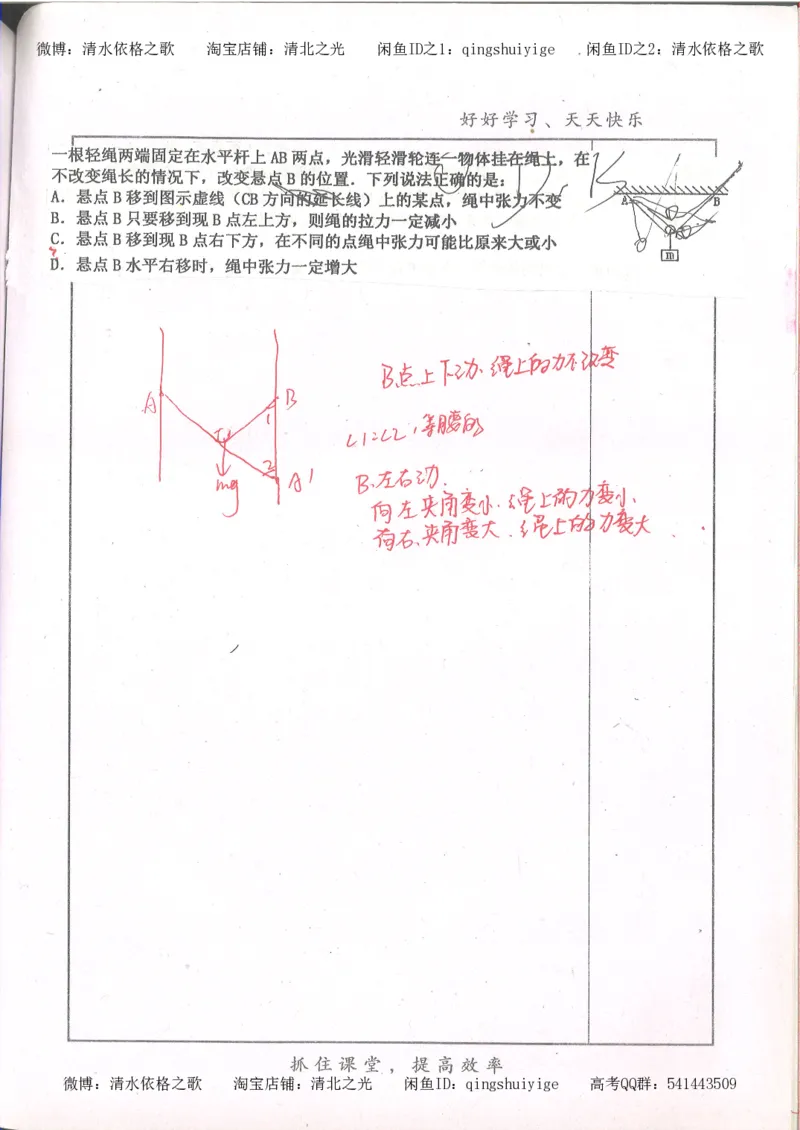 微博：清水依格之歌 淘宝店铺：清北之光 闲鱼ID之1：qingshuiyige 闲鱼ID之2：清水依格之歌
好好学习、天天快乐
一根轻绳两端固定在水平杆上 AB 两点，光滑轻滑轮连一物体挂在绳上，在
不改变绳长的情况下，改变悬点 B 的位置．下列说法正确的是：
A．悬点 B 移到图示虚线（CB 方向的延长线）上的某点，绳中张力不变
B．悬点 B 只要移到现 B 点左上方，则绳的拉力一定减小
C．悬点 B 移到现 B 点右下方，在不同的点绳中张力可能比原来大或小
D．悬点 B 水平右移时，绳中张力一定增大
A B
m
B点上下动.绳上的力不改变
A B
1
∠1=∠2，等腰的
2
A'
mg
B.左右动.
向左夹角变小.绳上的力变小.
向右.夹角变大.绳上的力变大
抓住课堂，提高效率
微博：清水依格之歌 淘宝店铺：清北之光 闲鱼ID：qingshuiyige 高考QQ群：541443509